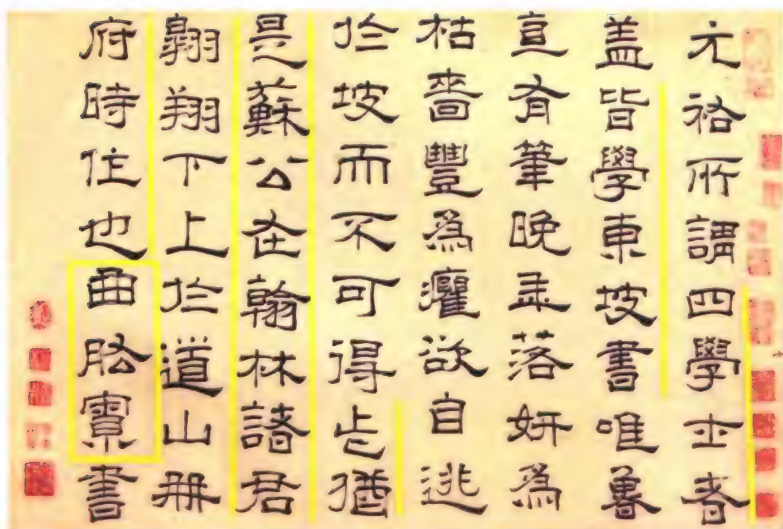 元祐所謂四學士者
盖皆學東坡書唯魯
直有筆晚年落妍為
枯嗇豐爲癯欲自逃
於坡而不可得也猶
是蘇公在翰林諸君
翱翔下上於道山册
府時住也曲肱寮書